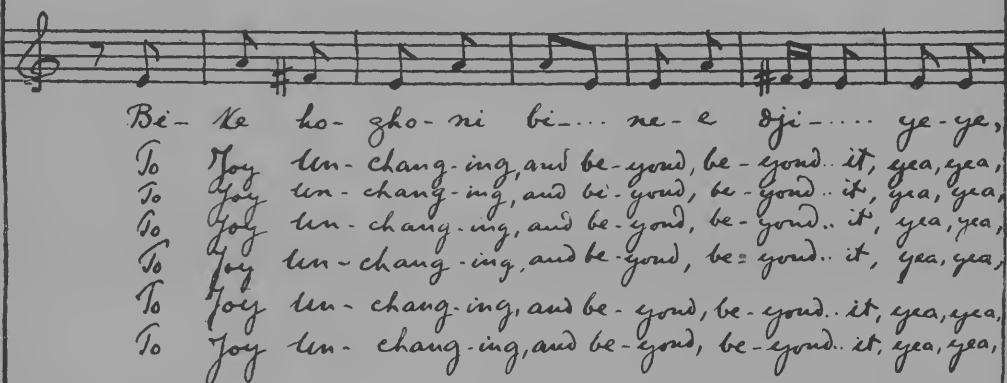 Bi- ke ho- zho- ni bi-.... ne- e dji-..... ye- ye,
To Joy Un- chang- ing, and be- yond, be- yond.. it, yea, yea,
To Joy Un- chang- ing, and be- yond, be- yond.. it, yea, yea,
To Joy Un- chang- ing, and be- yond, be- yond.. it, yea, yea,
To Joy Un- chang- ing, and be- yond, be= yond.. it, yea, yea,
To Joy Un- chang- ing, and be- yond, be- yond.. it, yea, yea,
To Joy Un- chang- ing, and be- yond, be- yond.. it, yea, yea,